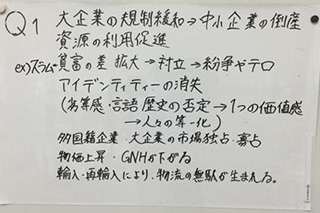 Q1 大企業の規制緩和→中小企業の倒産
資源の利用促進
ex)スラム・貧富の差 拡大→対立→紛争やテロ
アイデンティティーの消失
(劣等感・言語 歴史の否定→1つの価値感
→人々の単一化)
多国籍企業・大企業の市場独占・寡占
物価上昇・GNHが下がる
輸入・再輸入により、物流の無駄が生まれる。